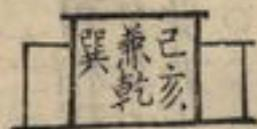 己亥
兼乾
巽